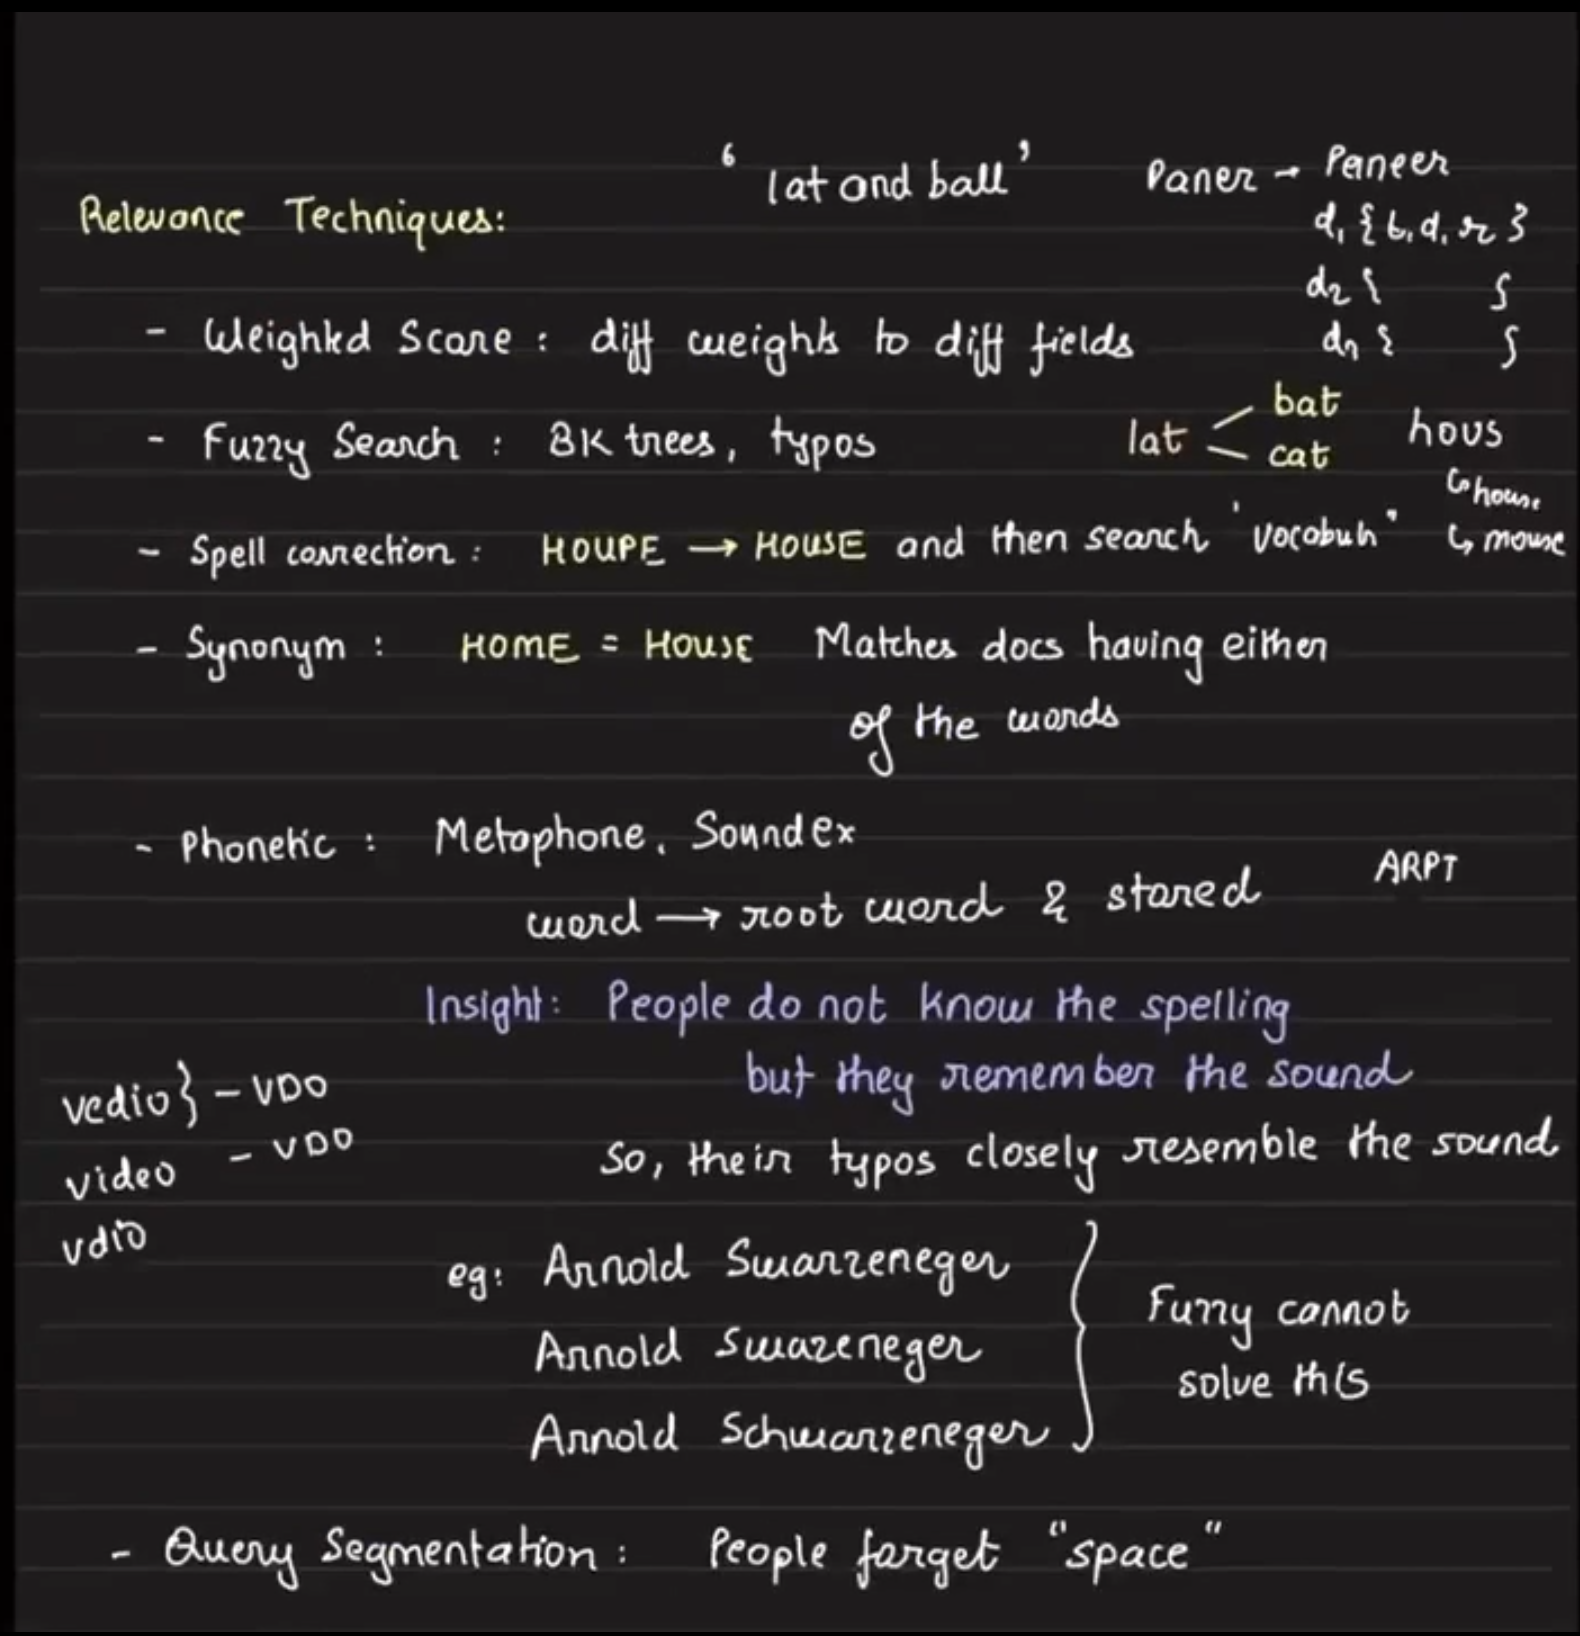 ‘ lat and ball’
Paner - Paneer
d1 { b, d, r }
Relevance Techniques:
d2 { }
- Weighted Score : diff weights to diff fields
dn { }
- Fuzzy Search : BK trees, typos
lat bat
cat
hous
house
mouse
- Spell correction : HOUPE → HOUSE and then search
- Synonym : HOME = HOUSE Matches docs having either
of the words
- Phonetic : Metaphone, Soundex
word → root word & stored
ARPT
Insight: People do not know the spelling
but they remember the sound
vedio } - VDO
video - VDO
vdio
So, their typos closely resemble the sound
eg: Arnold Swarzeneger
Arnold Swazeneger
Arnold Schwarzeneger
Fuzzy cannot
solve this
- Query Segmentation : People forget "space"